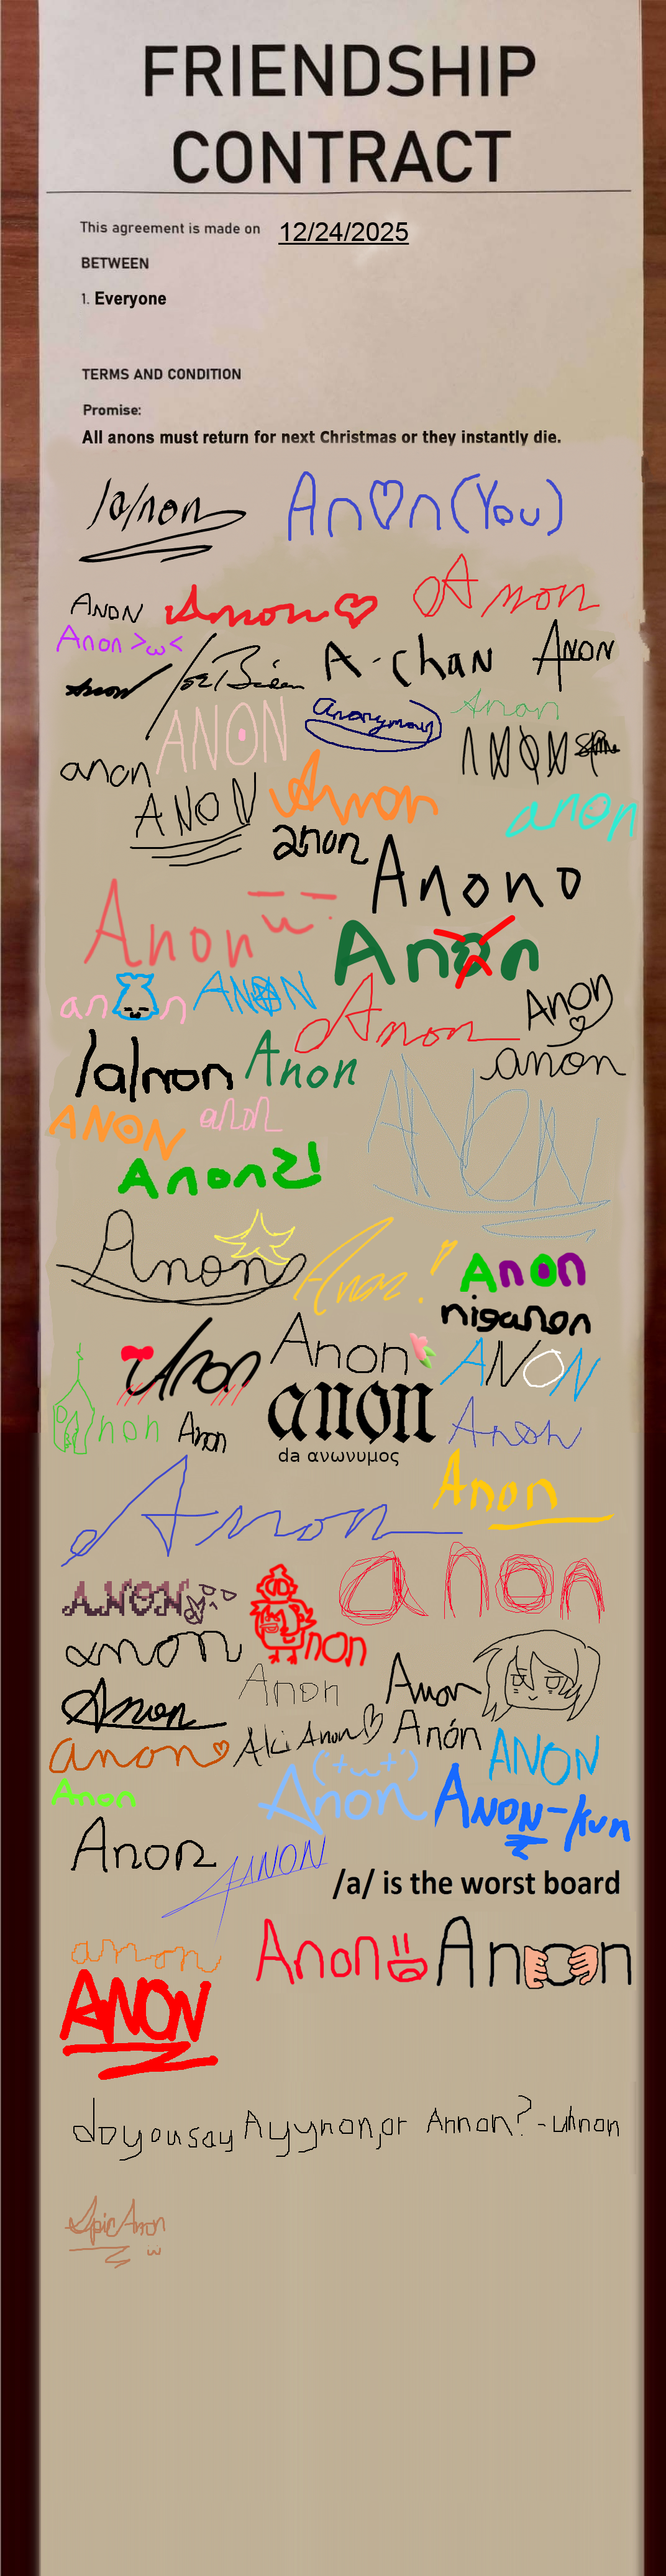 FRIENDSHIP
CONTRACT
This agreement is made on 12/24/2025
BETWEEN
1. Everyone
TERMS AND CONDITION
Promise:
All anons must return for next Christmas or they instantly die.
/a/non
An♡n (You)
ANON
Anon♡
Anon
Anon >ω<
Anon
Joe Biden
A-chan
ANON
ANON
Anonymous
Anon
anon
ANON
ANON
Anon
anon
anon
Anono
Anon
Anon
an n
ANON
Anon
Anon
/a/non
Anon
anon
ANON
anon
ANON
Anonz!
Anon
Anon!
Anon
niganon
Anon
Anon
ANON
Anon
Anon
anon
da ανωνυμος
Anon
Anon
Anon
ANON
non
anon
anon
Anon
Anon
Anon
Anon
anon♡
Aki Anon♡
Anón
ANON
Anon
Anon
('+ω+')
ANON-kun
Anon
ANON
/a/ is the worst board
anon
Anon
Anon
ANON
do you say Ayynon, or Annon? - uhnon
EpicAnon
ω